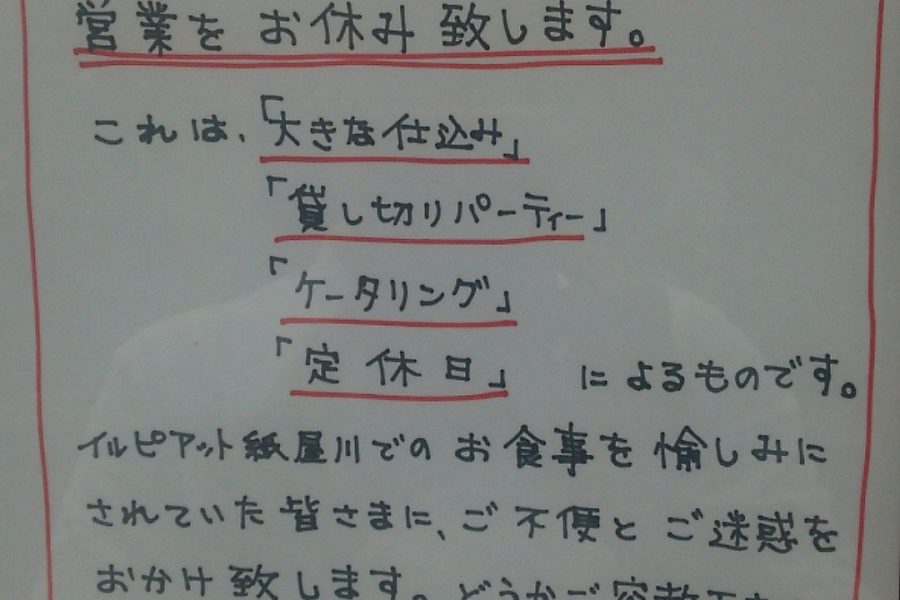 営業をお休み致します。
これは、「大きな仕込み」
「貸し切りパーティー」
「ケータリング」
「定休日」 によるものです。
イルピアット紙屋川でのお食事を愉しみに
されていた皆さまに、ご不便とご迷惑を
おかけ致します。どうかご容赦